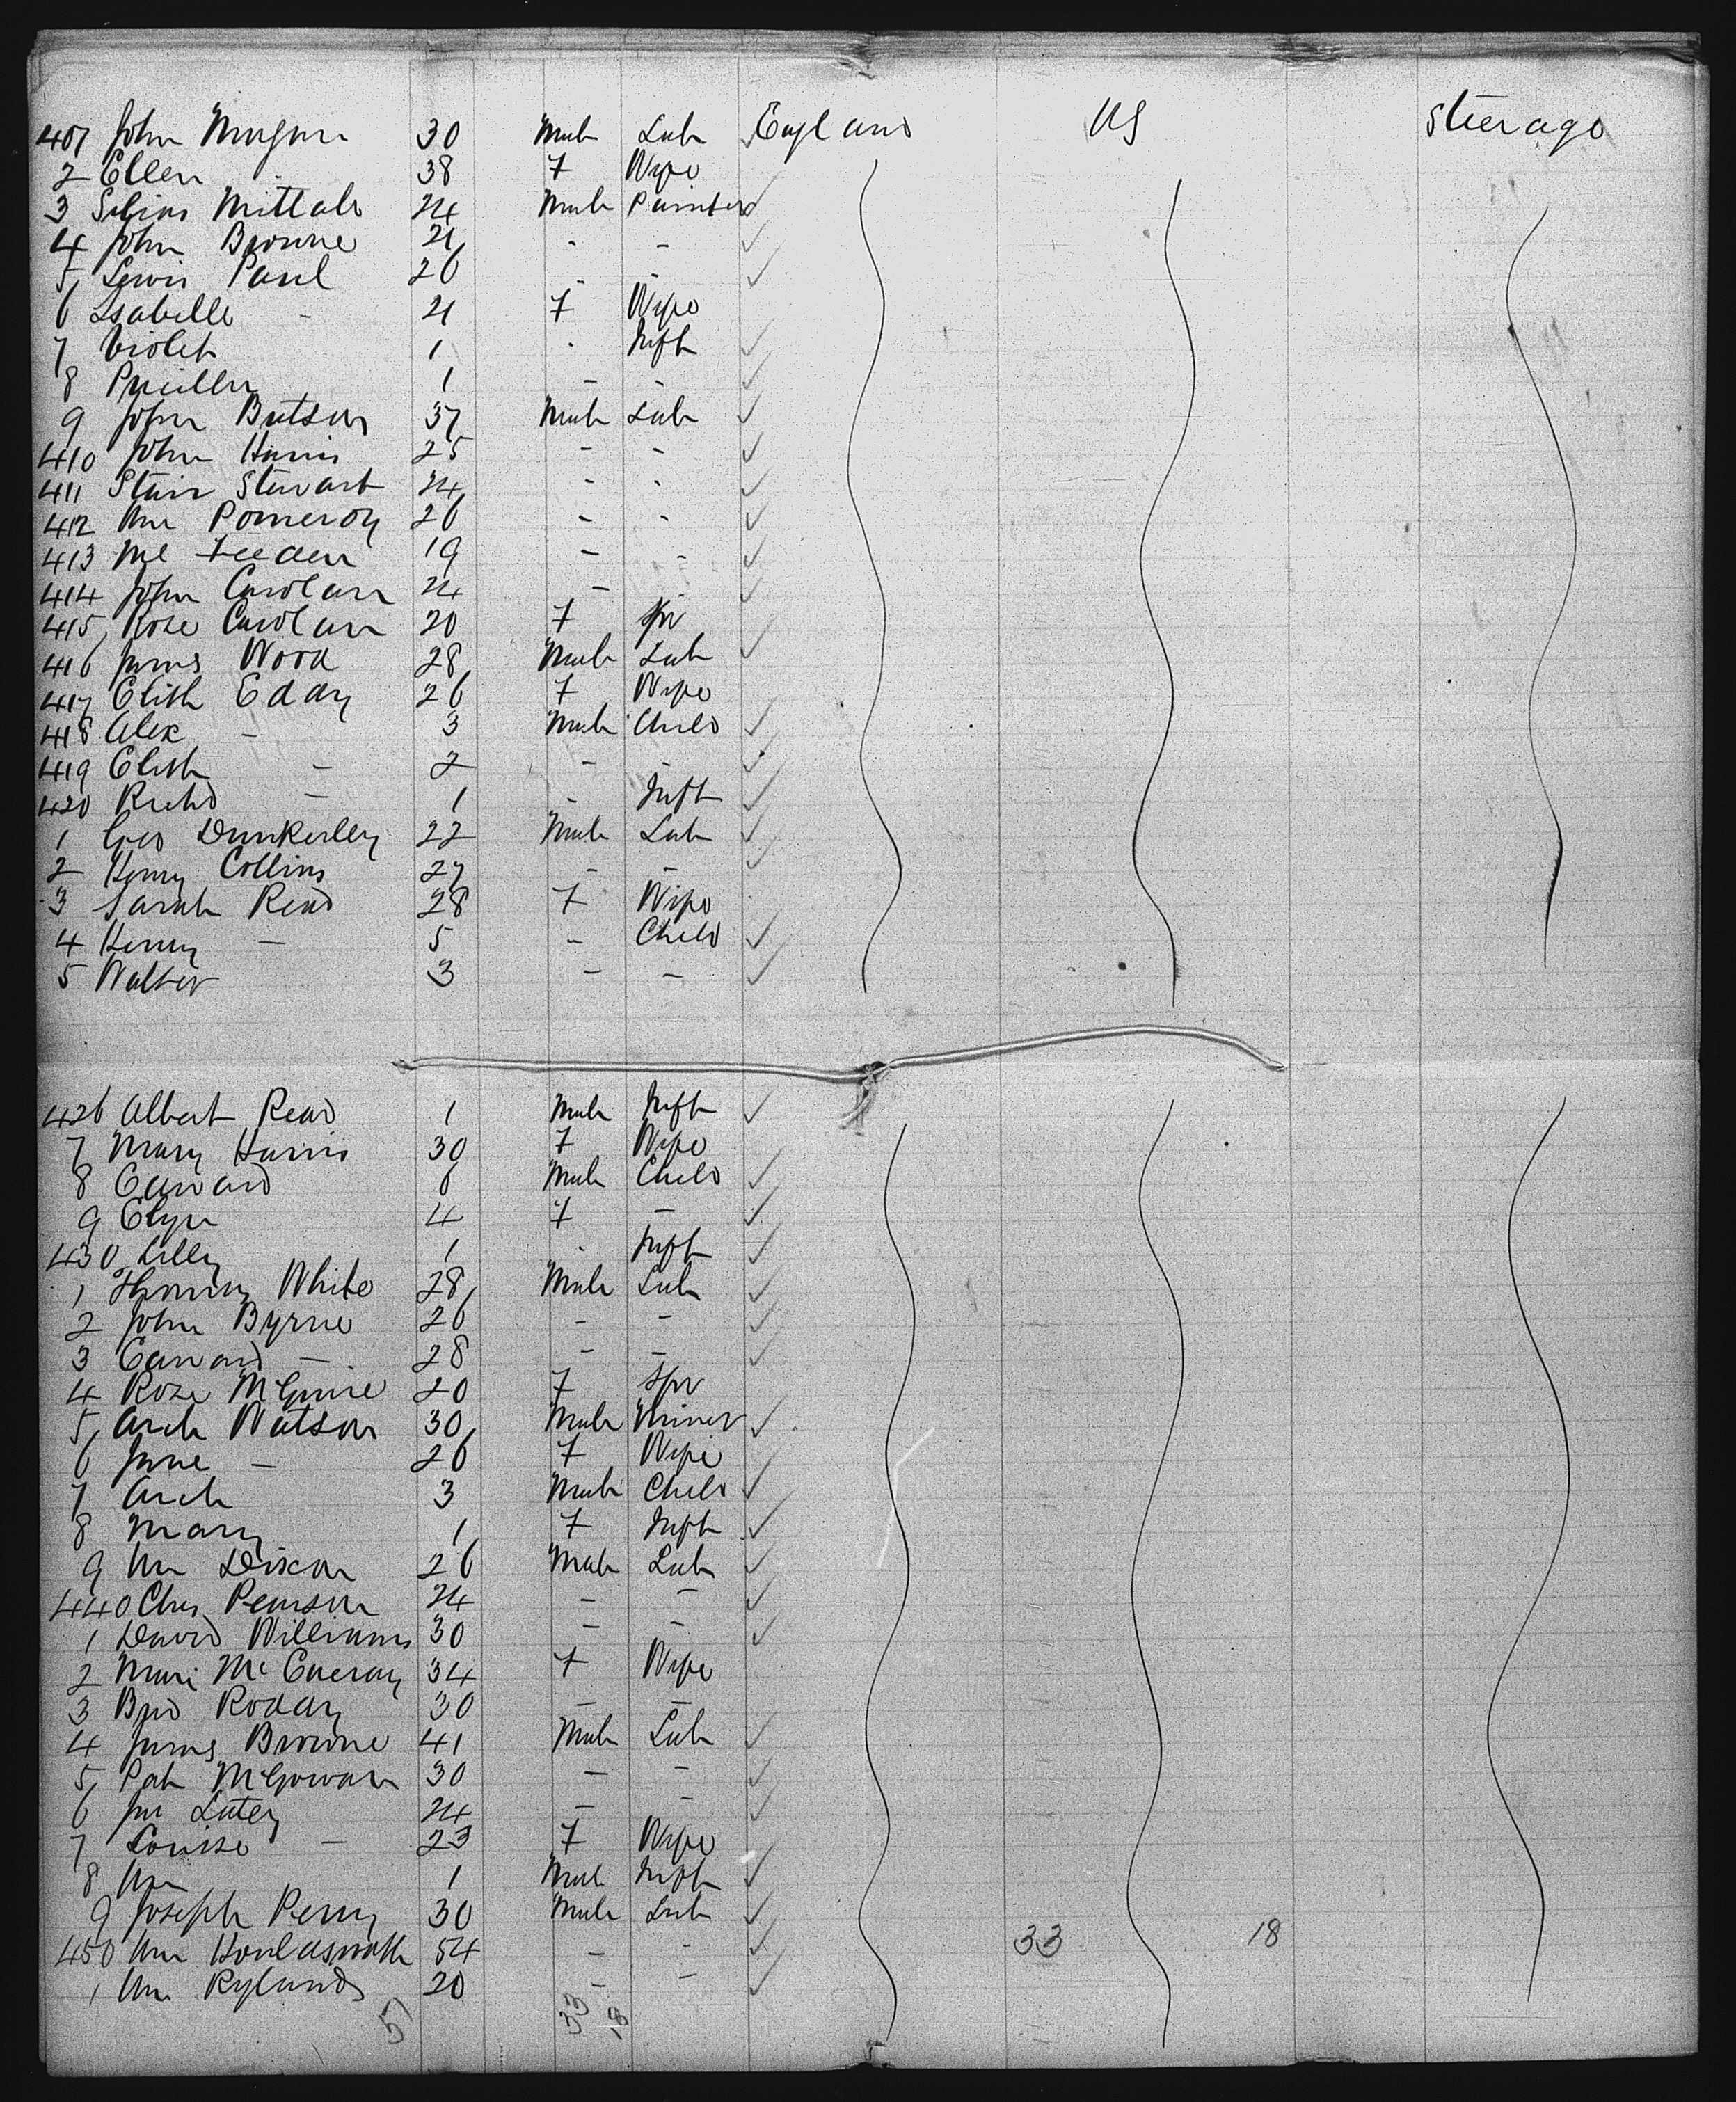 401 John Magan 30 Male Lab England US Steerage
2 Ellen 38 F Wife
3 Mittale 24 Male Painter
4 John Browne 21 - -
5 Lewis Paul 26 - -
6 Isabella - 21 F Wife
7 Violet 1 - Inft
8 Pricilla 1 - -
9 John Butson 37 Male Lab
410 John Harris 25 - -
411 Stair Stewart 24 - -
412 Wm Pomeroy 26 - -
413 Ml 19 - -
414 John Carolan 24 - -
415 Rose Carolan 20 F Spr
416 James Wood 28 Male Lab
417 Elizth Eddy 26 F Wife
418 Alex - 3 Male Child
419 Elizth - 2 - -
420 Richd - 1 - Inft
1 Geo Dunkerley 22 Male Lab
2 Henry Collins 27 - -
3 Sarah Read 28 F Wife
4 Henry - 5 - Child
5 Walter 3 - -
426 Albert Read 1 Male Inft
7 Mary Harris 30 F Wife
8 Edward 6 Male Child
9 4 F -
430 Lilly 1 - Inft
1 Thomas White 28 Male Lab
2 John Byrne 26 - -
3 Edward - 28 - -
4 Rose McGuire 20 F Spr
5 Arch Watson 30 Male Miner
6 Jane - 26 F Wife
7 Arch 3 Male Child
8 Mary 1 F Inft
9 Wm Dixon 26 Male Lab
440 Chas Pearson 24 - -
1 David Williams 30 - -
2 34 F Wife
3 Brid Roddy 30 - -
4 James Browne 41 Male Lab
5 Pat McGowan 30 - -
6 Jas Lutey 24 - -
7 Louisa - 23 F Wife
8 Wm 1 Male Inft
9 Joseph Perry 30 Male Lab
450 Wm Houldsworth 54 - - 33 18
1 Wm Rylands 20 - -
51 33 18